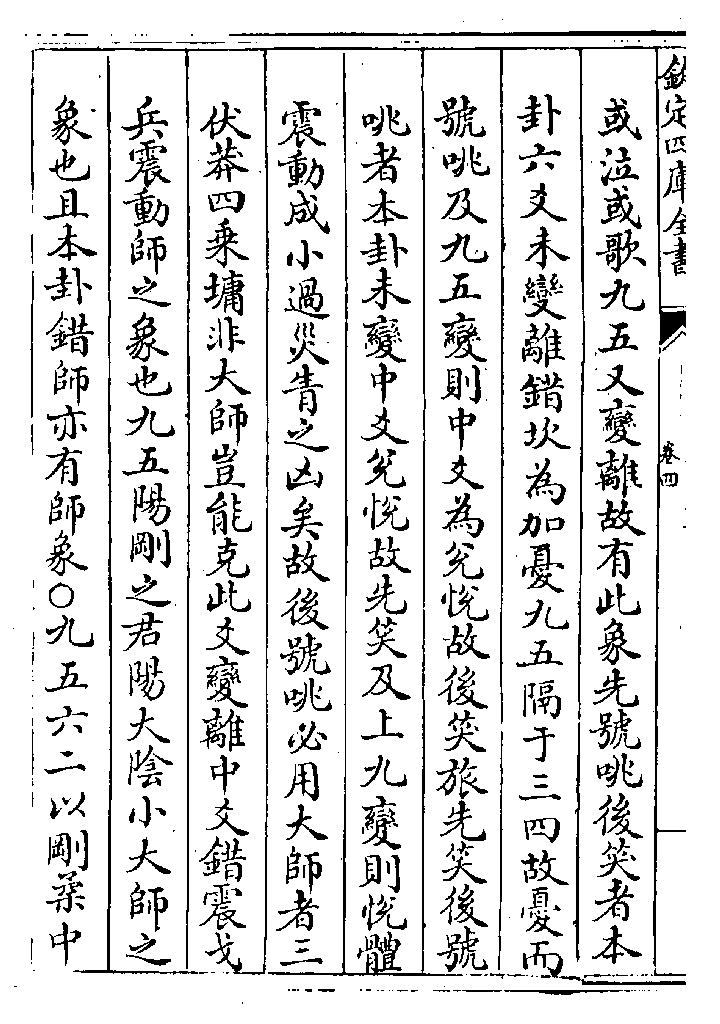 欽定四庫全書
卷四
或泣或歌九五又變離故有此象先號咷後笑者本
卦六爻未變離錯坎為加憂九五隔于三四故憂而
號咷及九五變則中爻為兌悅故後笑旅先笑後號
咷者本卦未變中爻兌悅故先笑及上九變則悅體
震動成小過災眚之凶矣故後號咷必用大師者三
伏莽四乘墉非大師豈能克此爻變離中爻錯震戈
兵震動師之象也九五陽剛之君陽大陰小大師之
象也且本卦錯師亦有師象○九五六二以剛柔中